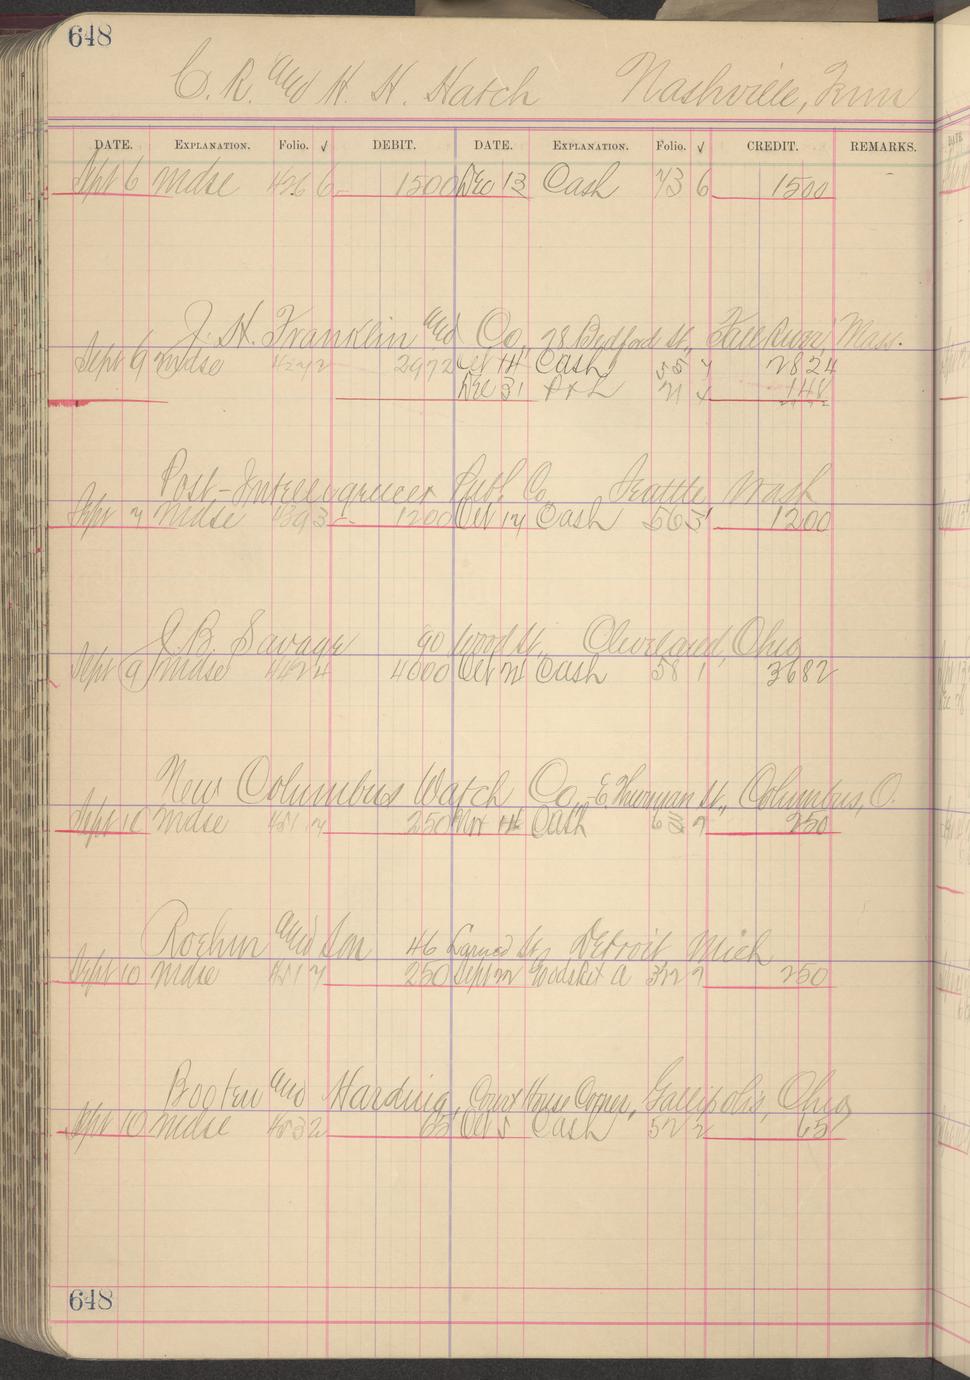 648
C. R. and H. H. Hatch Nashville, Tenn
DATE. EXPLANATION. Folio. √ DEBIT. DATE. EXPLANATION. Folio. √ CREDIT. REMARKS.
Sept 6 Mdse 426 6 1500 Dec 13 Cash 73 6 1500
J. H. Franklin and Co, 28 Bedford St., Fall River, Mass.
Sept 9 Mdse 2972 Oct 14 Cash 55 7 2824
Dec 31 P & L 71 4 148
Post-Intelligencer Publ. Co. Seattle Wash
Sept 7 Mdse 439 3 1200 Oct 17 Cash 56 5 1200
J. B. Savage 90 Wood St., Cleveland, Ohio
Sept 9 Mdse 442 4 4000 Oct 21 Cash 58 1 3682
New Columbus Watch Co, E Thurman St., Columbus, O.
Sept 10 Mdse 451 7 250 Nov 14 Cash 7 250
Roehm and Son 46 Larned St, Detroit Mich
Sept 10 Mdse 451 7 250 Sept 22 322 7 250
Booten and Harding, Court House Corner, Gallipolis, Ohio
Sept 10 Mdse 453 2 65 Oct 5 Cash 52 2 65
648